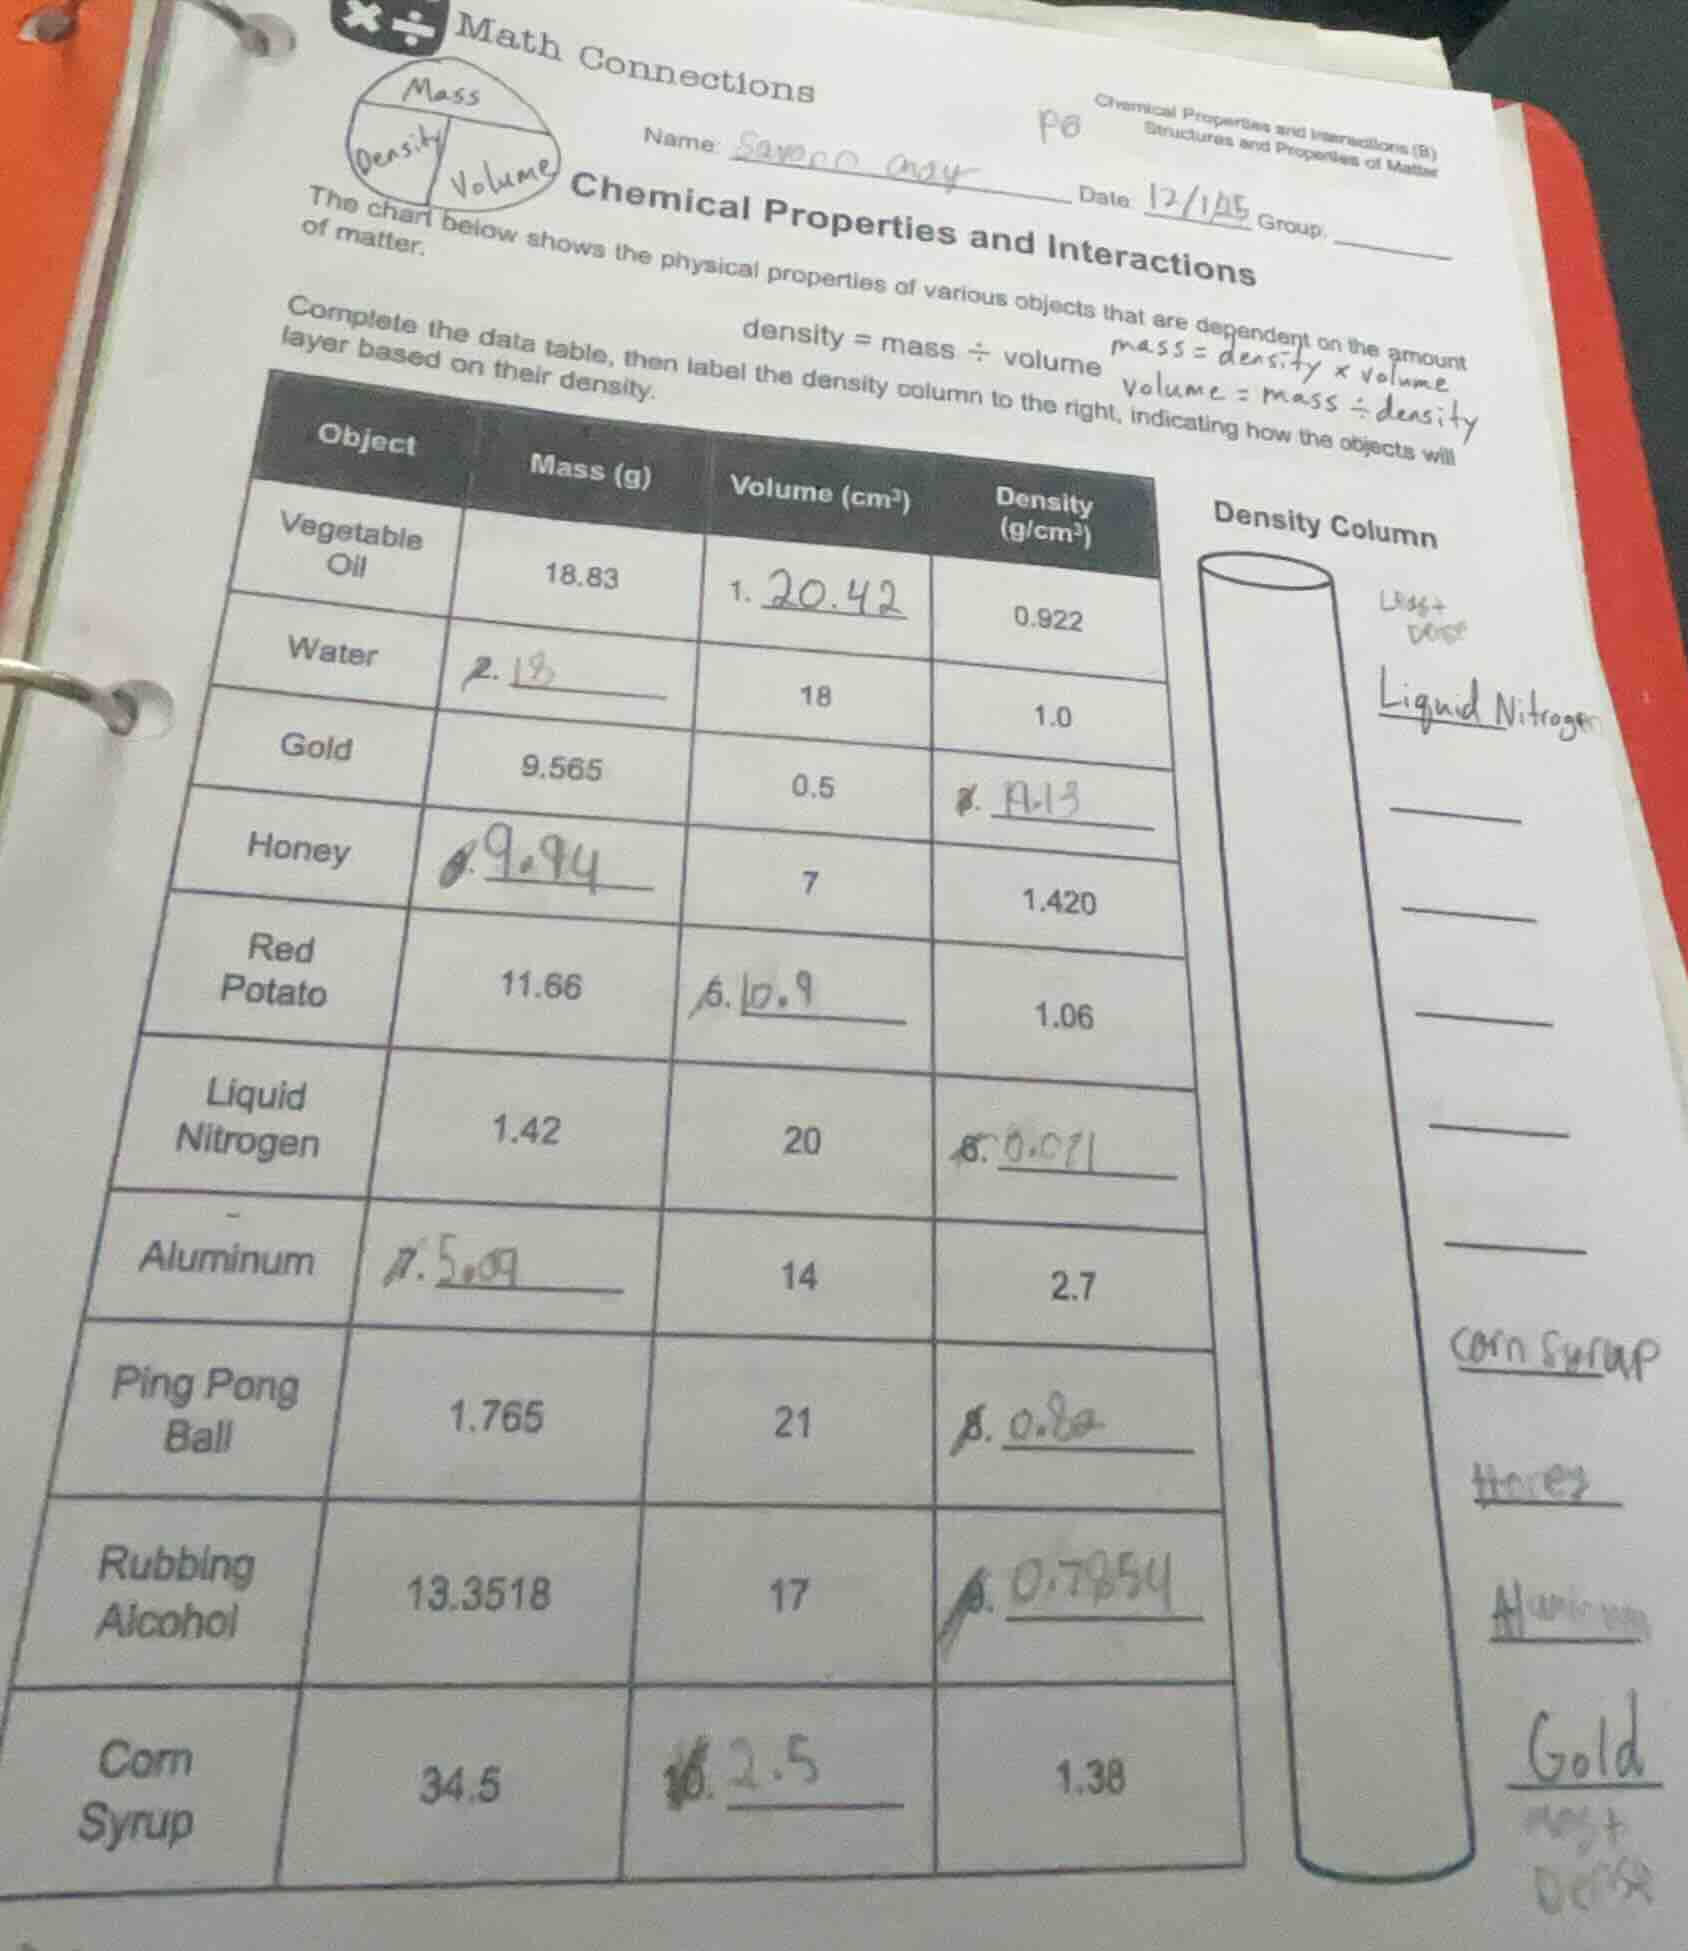 ×÷ Math Connections
Mass
Density
Volume
P8
Chemical Properties and Interactions (B)
Structures and Properties of Matter
Name:
Date: 12/1/25 Group:
Chemical Properties and Interactions
The chart below shows the physical properties of various objects that are dependent on the amount
of matter.
density = mass ÷ volume
mass = density × volume
volume = mass ÷ density
Complete the data table, then label the density column to the right, indicating how the objects will
layer based on their density.
Object Mass (g) Volume (cm³) Density (g/cm³)
Vegetable Oil 18.83 1. 20.42 0.922
Water 2. 18 18 1.0
Gold 9.565 0.5 3. 19.13
Honey 9.94 7 1.420
Red Potato 11.66 5. 10.9 1.06
Liquid Nitrogen 1.42 20 6. 0.071
Aluminum 7. 5.09 14 2.7
Ping Pong Ball 1.765 21 8. 0.82
Rubbing Alcohol 13.3518 17 9. 0.7854
Corn Syrup 34.5 10. 2.5 1.38
Density Column
Least
Dense
Liquid Nitrogen
corn syrup
Honey
Aluminum
Gold
most
Dense